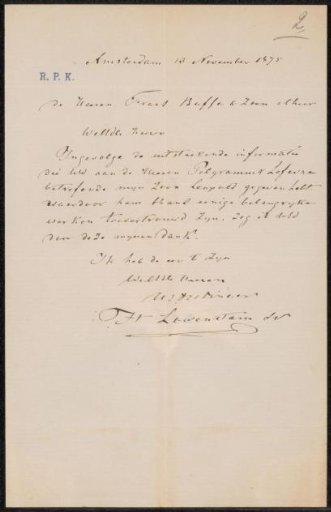 2
Amsterdam 13 November 1875
R. P. K.
de Heeren Frans Buffa & Zoon alhier
WelEdele Heeren
Ingevolge de uitstekende informatie
die UEd aan de Heeren Pilgeram & Lefevre
betreffende mijn Zoon Leopold gegeven hebt
waardoor hem thans eenige belangrijke
werken toevertrouwd zijn, zeg ik UEd
den dank
Ik heb de eer te zijn
WelEdele Heeren
Uw Dw Dienaar
Löwenstam